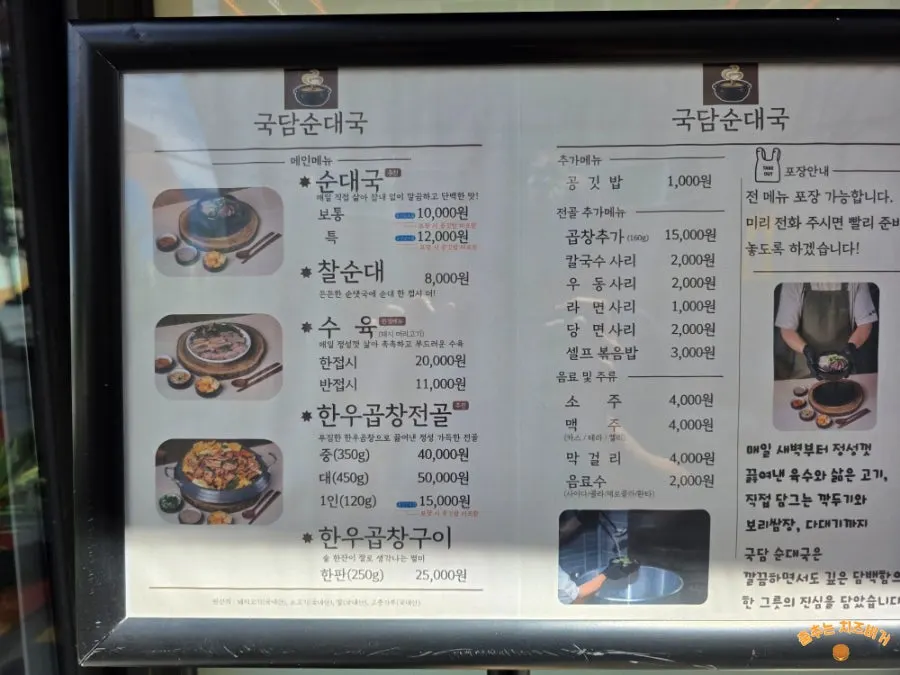 국담순대국
메인메뉴
순대국 추천
매일 직접 삶아 잡내 없이 깔끔하고 담백한 맛!
보통 10,000원
포장 시 공깃밥 미포함
특 12,000원
포장 시 공깃밥 미포함
찰순대 8,000원
든든한 순댓국에 순대 한 접시 더!
수육
(돼지 머리고기)
매일 정성껏 삶아 촉촉하고 부드러운 수육
한접시 20,000원
반접시 11,000원
한우곱창전골 추천
푸짐한 한우곱창으로 끓여낸 정성 가득한 전골
중(350g) 40,000원
대(450g) 50,000원
1인(120g) 15,000원
포장 시 공깃밥 미포함
한우곱창구이
술 한잔이 절로 생각나는 별미
한판(250g) 25,000원
국담순대국
추가메뉴
공깃밥 1,000원
전골 추가메뉴
곱창추가 (160g) 15,000원
칼국수사리 2,000원
우동사리 2,000원
라면사리 1,000원
당면사리 2,000원
셀프 볶음밥 3,000원
음료 및 주류
소주 4,000원
맥주 4,000원
(카스 / 테라 / 켈리)
막걸리 4,000원
음료수 2,000원
(사이다/콜라/제로콜라/환타)
TAKE OUT
포장안내
전 메뉴 포장 가능합니다.
미리 전화 주시면 빨리 준비
놓도록 하겠습니다!
매일 새벽부터 정성껏
끓여낸 육수와 삶은 고기,
직접 담그는 깍두기와
보리쌈장, 다대기까지
국담 순대국은
깔끔하면서도 깊은 담백함으
한 그릇의 진심을 담았습니다
춤추는 치즈버거